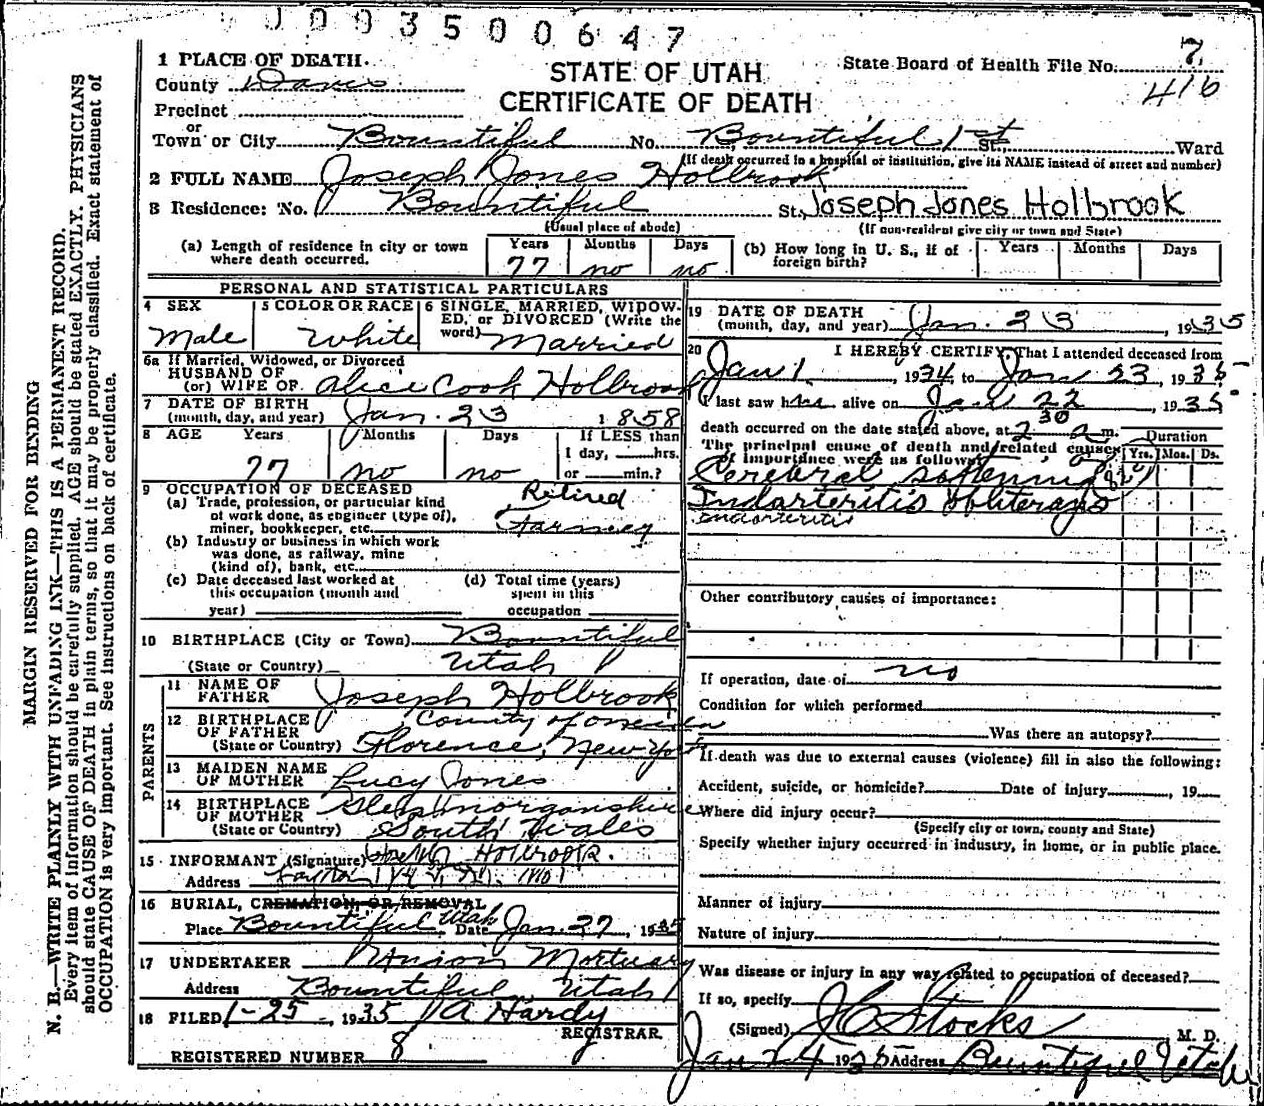 0093500647
STATE OF UTAH
CERTIFICATE OF DEATH
State Board of Health File No. 7
416
1 PLACE OF DEATH.
County Davis
Precinct
or
Town or City Bountiful No. Bountiful 1st St., Ward
(If death occurred in a hospital or institution, give its NAME instead of street and number)
2 FULL NAME Joseph Jones Holbrook
3 Residence: No. Bountiful St., Joseph Jones Holbrook
(Usual place of abode) (If non-resident give city or town and State)
(a) Length of residence in city or town where death occurred. Years 77 Months no Days no
(b) How long in U. S., if of foreign birth? Years Months Days
PERSONAL AND STATISTICAL PARTICULARS
4 SEX Male
5 COLOR OR RACE White
6 SINGLE, MARRIED, WIDOWED, or DIVORCED (Write the word) Married
6a If Married, Widowed, or Divorced
HUSBAND OF
(or) WIFE OF Alice Cook Holbrook
7 DATE OF BIRTH
(month, day, and year) Jan. 23 1858
8 AGE Years 77 Months no Days no If LESS than 1 day, hrs. or min.?
9 OCCUPATION OF DECEASED
(a) Trade, profession, or particular kind of work done, as engineer (type of), miner, bookkeeper, etc. Retired Farmer
(b) Industry or business in which work was done, as railway, mine (kind of), bank, etc.
(c) Date deceased last worked at this occupation (month and year)
(d) Total time (years) spent in this occupation
10 BIRTHPLACE (City or Town) Bountiful
(State or Country) Utah
PARENTS
11 NAME OF FATHER Joseph Holbrook
12 BIRTHPLACE OF FATHER County of Oneida
(State or Country) Florence, New York
13 MAIDEN NAME OF MOTHER Lucy Jones
14 BIRTHPLACE OF MOTHER
(State or Country) South Wales
15 INFORMANT (Signature) Holbrook.
Address
16 BURIAL, CREMATION, OR REMOVAL
Place Bountiful Utah Date Jan. 27, 1935
17 UNDERTAKER Union Mortuary
Address Bountiful, Utah
18 FILED 1-25, 1935 J A Hardy
REGISTRAR
REGISTERED NUMBER 8
19 DATE OF DEATH
(month, day, and year) Jan. 23, 1935
20 I HEREBY CERTIFY, That I attended deceased from
Jan 1, 1934 to Jan 23, 1935
I last saw him alive on Jan 22, 1935
death occurred on the date stated above, at 2 30 a m.
The principal cause of death and related causes of importance were as follows:
Duration
Yrs. Mos. Ds.
Cerebral softening
82
Indarteritis Obliterans
Endarteritis
Other contributory causes of importance:
If operation, date of no
Condition for which performed
Was there an autopsy?
If death was due to external causes (violence) fill in also the following:
Accident, suicide, or homicide? Date of injury, 19
Where did injury occur?
(Specify city or town, county and State)
Specify whether injury occurred in industry, in home, or in public place.
Manner of injury
Nature of injury
Was disease or injury in any way related to occupation of deceased?
If so, specify
(Signed) J C Stocks M. D.
Jan 24 1935 Address Bountiful Utah
MARGIN RESERVED FOR BINDING
N. B.—WRITE PLAINLY WITH UNFADING INK—THIS IS A PERMANENT RECORD.
Every item of information should be carefully supplied. AGE should be stated EXACTLY. PHYSICIANS
should state CAUSE OF DEATH in plain terms, so that it may be properly classified. Exact statement of
OCCUPATION is very important. See instructions on back of certificate.